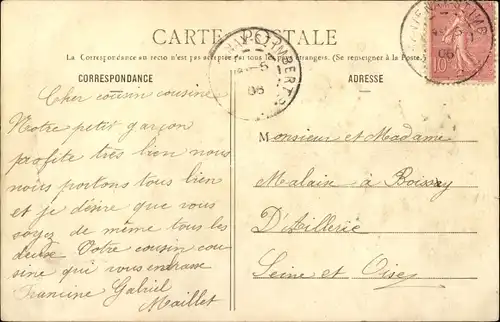 CARTE POSTALE
La Correspondance au recto n'est pas acceptée par tous les pays étrangers. (Se renseigner à la Poste.)
CORRESPONDANCE
Cher cousin cousine
Notre petit garçon
profite très bien nous
nous portons tous bien
et je désire que vous
soyez de même tous les
deuse Votre cousin cou
sine qui vous embrasse
Francine Gabriel
Maillet
ADRESSE
Monsieur et Madame
Malain à Boissy
D'Aillerie
Seine et Oise
06
10
06